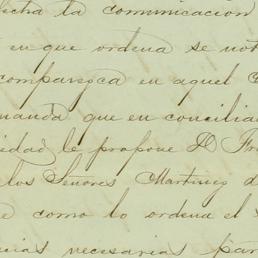 dicha la comunicacion
en que ordena se not
comparezca en aquel
manda que en concilia
idad le propone D Fra
los Señores Martinez d
como lo ordena el
cias necesarias par